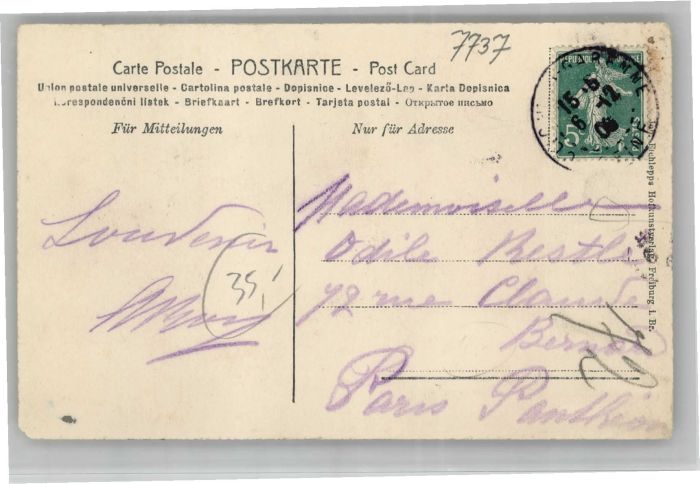 7737
Carte Postale - POSTKARTE - Post Card
Union postale universelle - Cartolina postale - Dopisnice - Levelező-Lap - Karta Dopisnica
Korespondenční listek - Briefkaart - Brefkort - Tarjeta postal - Открытое письмо
Für Mitteilungen
Nur für Adresse
Souvenir
35,-
Mademoiselle
Odile
72 rue Claude
Bernard
Paris Panthéon
15 -
6 - 12
08
5
POSTES
Hofkunstverlag, Freiburg i. Br.